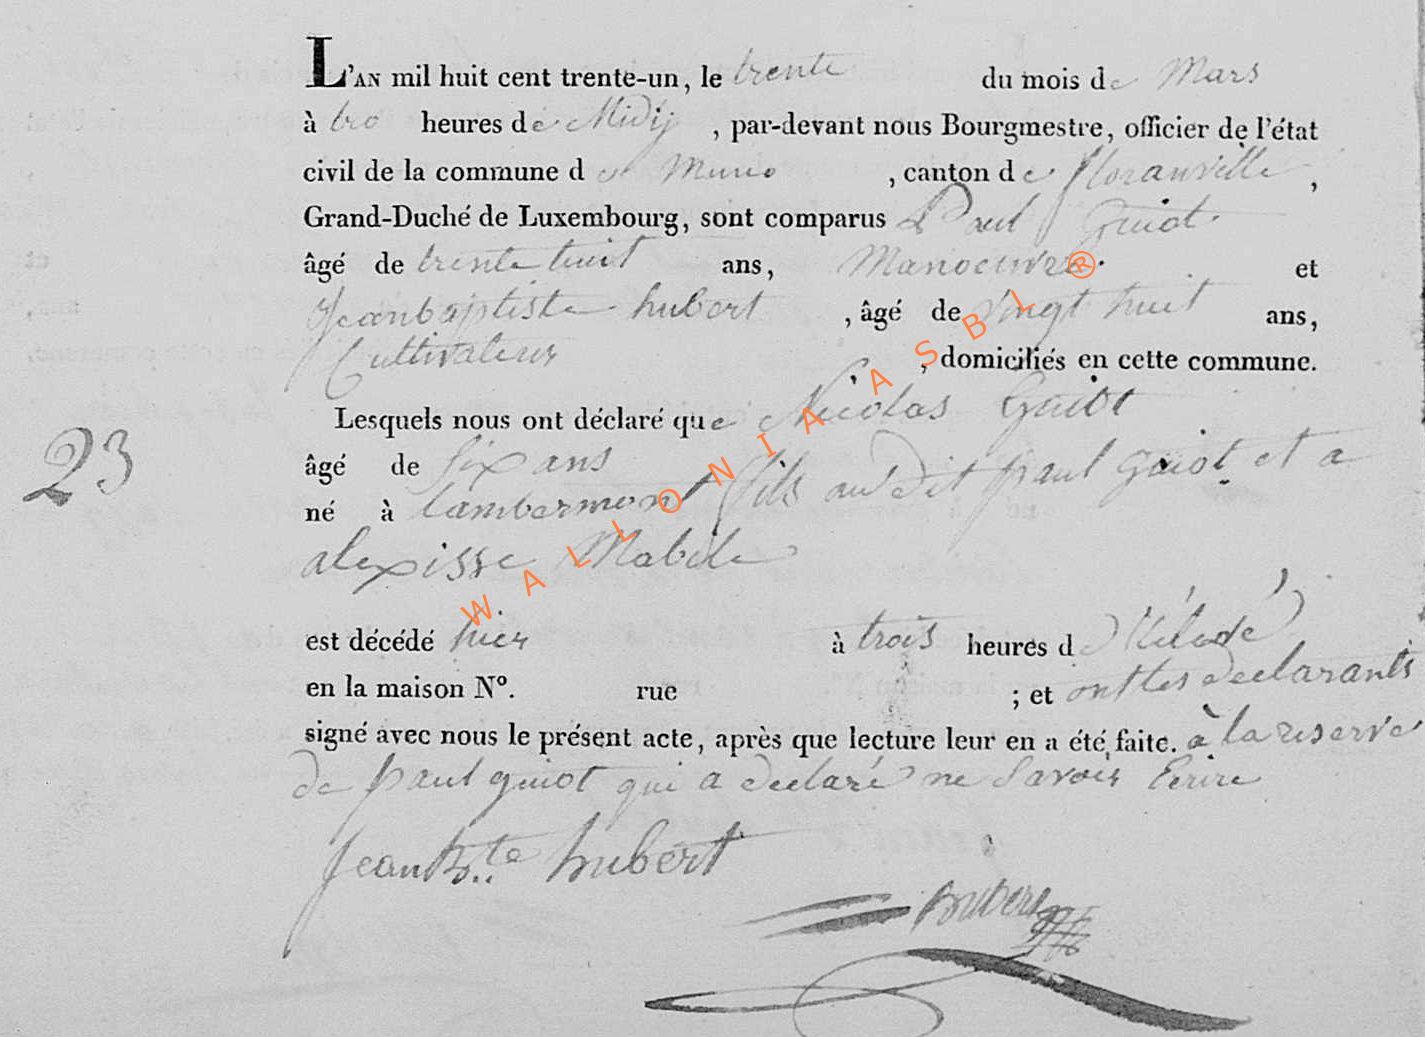 L'AN mil huit cent trente-un, le trente du mois de Mars
à tro heures de Midij , par-devant nous Bourgmestre, officier de l'état
civil de la commune d e Muno , canton de floranville ,
Grand-Duché de Luxembourg, sont comparus Paul Guiot
âgé de trente huit ans, Manoeuvre et
Jeanbaptiste hubert , âgé de vingt huit ans,
Cultivateur , domiciliés en cette commune.
Lesquels nous ont déclaré que Nicolas Guiot
23
âgé de six ans
né à Lambermont fils au dit paul guiot et a
alexisse Mabile
est décédé hier à trois heures d
en la maison N°. rue ; et ont les declarants
signé avec nous le présent acte, après que lecture leur en a été faite. à la reserve
de paul guiot qui a declaré ne savoir Ecrire
jean bte hubert
hubert
WALLONIA ASBL ®